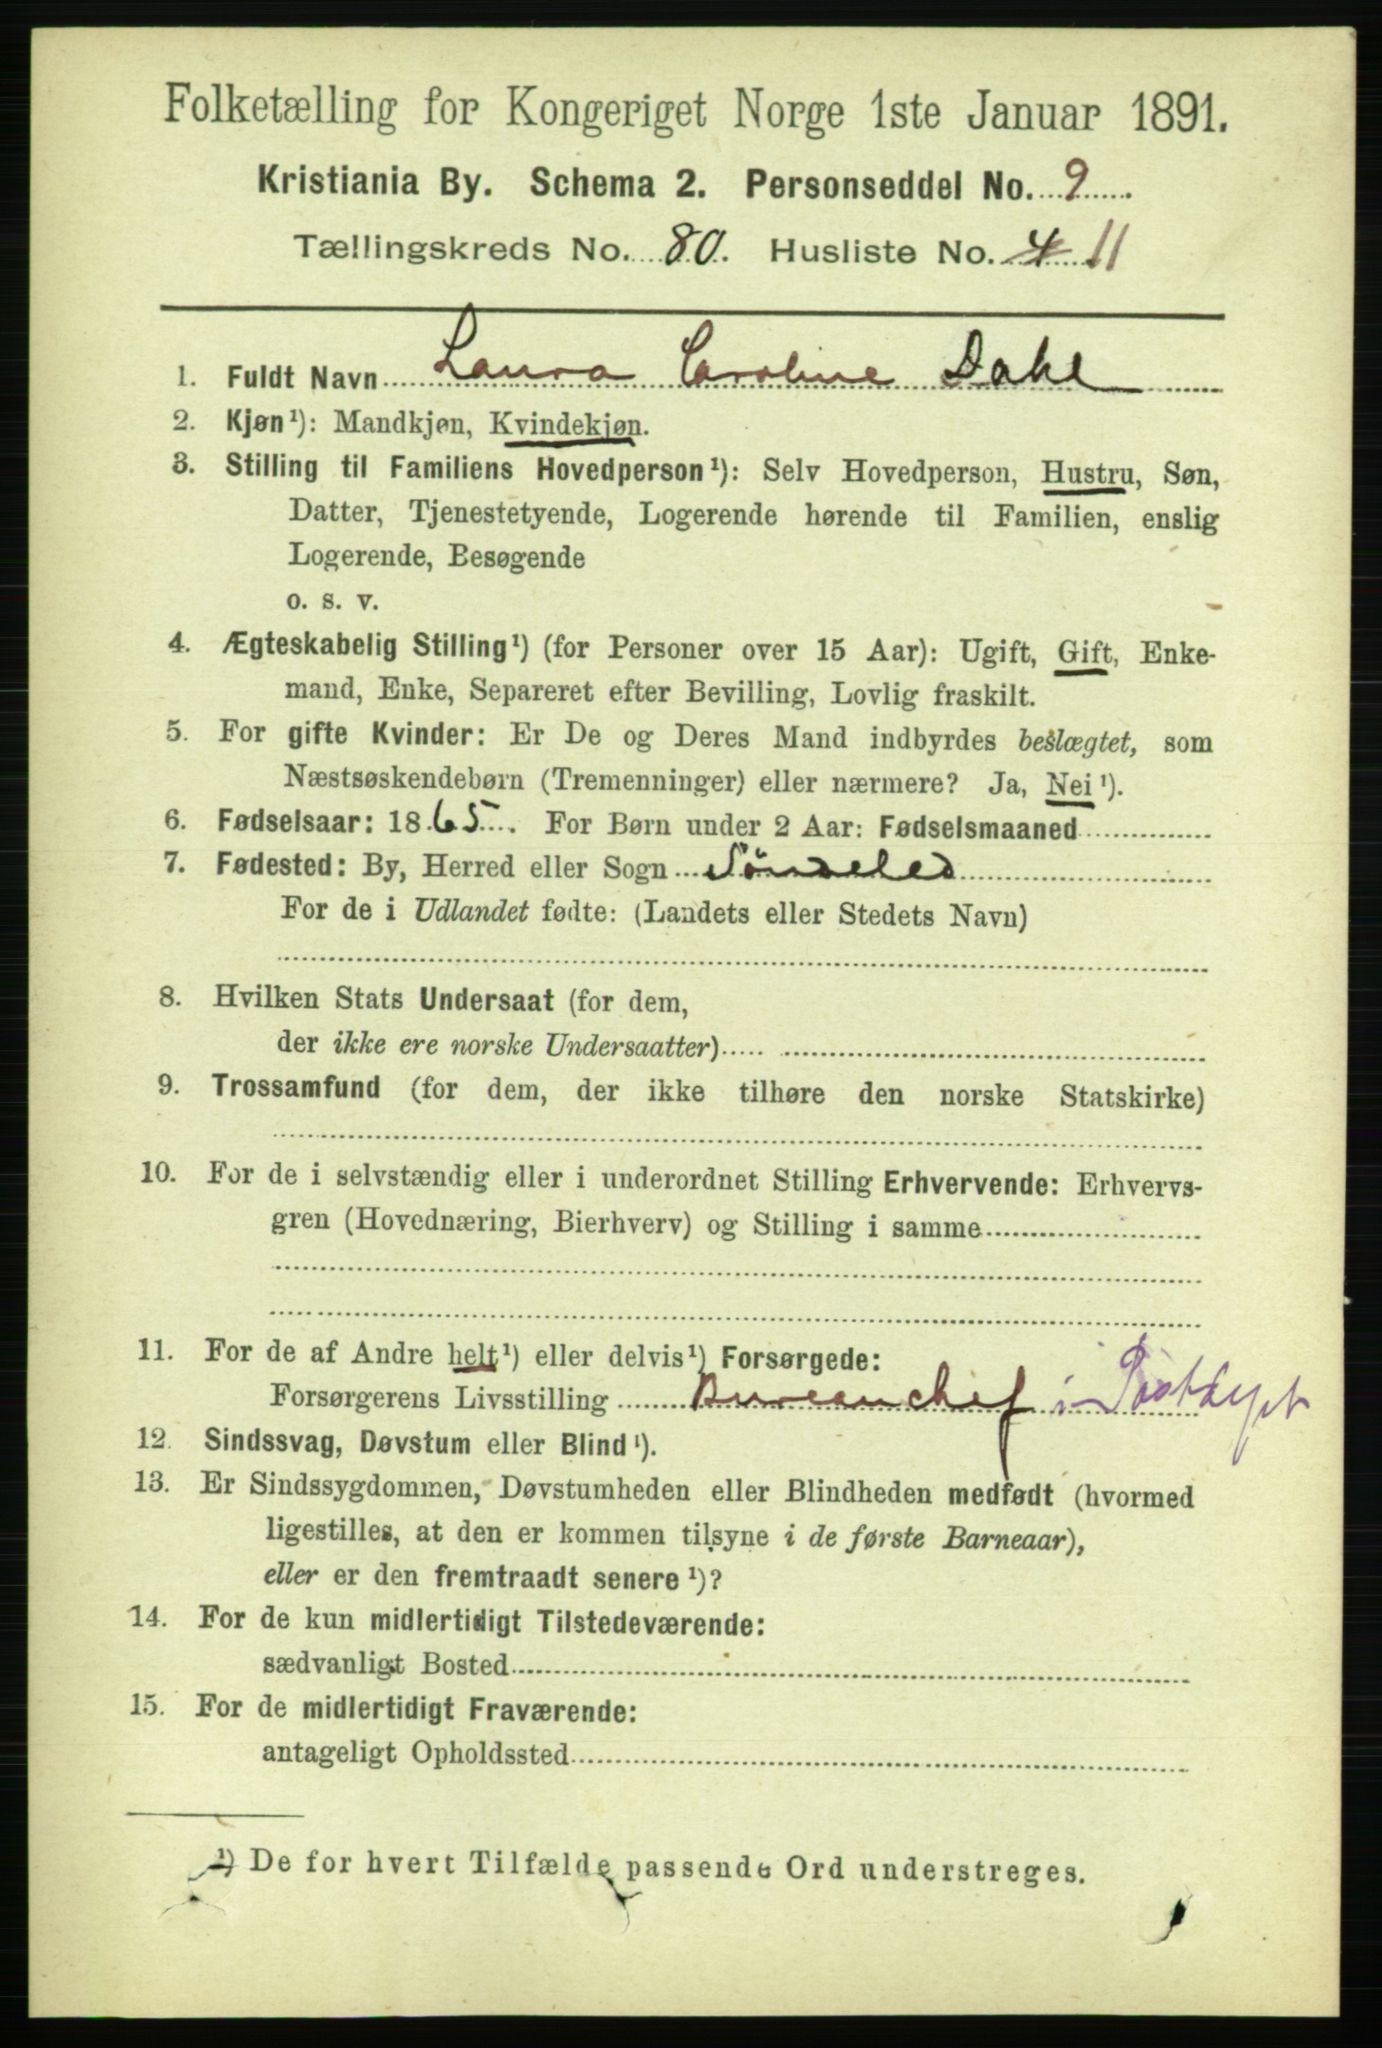 Folketælling for Kongeriget Norge 1ste Januar 1891.
Kristiania By. Schema 2. Personseddel No. 9
Tællingskreds No. 80. Husliste No. 4 11
1. Fuldt Navn Laura Caroline Dahl
2. Kjøn¹): Mandkjøn, Kvindekjøn.
3. Stilling til Familiens Hovedperson¹): Selv Hovedperson, Hustru, Søn,
Datter, Tjenestetyende, Logerende hørende til Familien, enslig
Logerende, Besøgende
o. s. v.
4. Ægteskabelig Stilling¹) (for Personer over 15 Aar): Ugift, Gift, Enke-
mand, Enke, Separeret efter Bevilling, Lovlig fraskilt.
5. For gifte Kvinder: Er De og Deres Mand indbyrdes beslægtet, som
Næstsøskendebørn (Tremenninger) eller nærmere? Ja, Nei¹).
6. Fødselsaar: 1865. For Børn under 2 Aar: Fødselsmaaned
7. Fødested: By, Herred eller Sogn Söndeled
For de i Udlandet fødte: (Landets eller Stedets Navn)
8. Hvilken Stats Undersaat (for dem,
der ikke ere norske Undersaatter)
9. Trossamfund (for dem, der ikke tilhøre den norske Statskirke)
10. For de i selvstændig eller i underordnet Stilling Erhvervende: Erhvervs-
gren (Hovednæring, Bierhverv) og Stilling i samme
11. For de af Andre helt¹) eller delvis¹) Forsørgede:
Forsørgerens Livsstilling Bureauchef i
12. Sindssvag, Døvstum eller Blind¹).
13. Er Sindssygdommen, Døvstumheden eller Blindheden medfødt (hvormed
ligestilles, at den er kommen tilsyne i de første Barneaar),
eller er den fremtraadt senere¹)?
14. For de kun midlertidigt Tilstedeværende:
sædvanligt Bosted
15. For de midlertidigt Fraværende:
antageligt Opholdssted
¹) De for hvert Tilfælde passende Ord understreges.